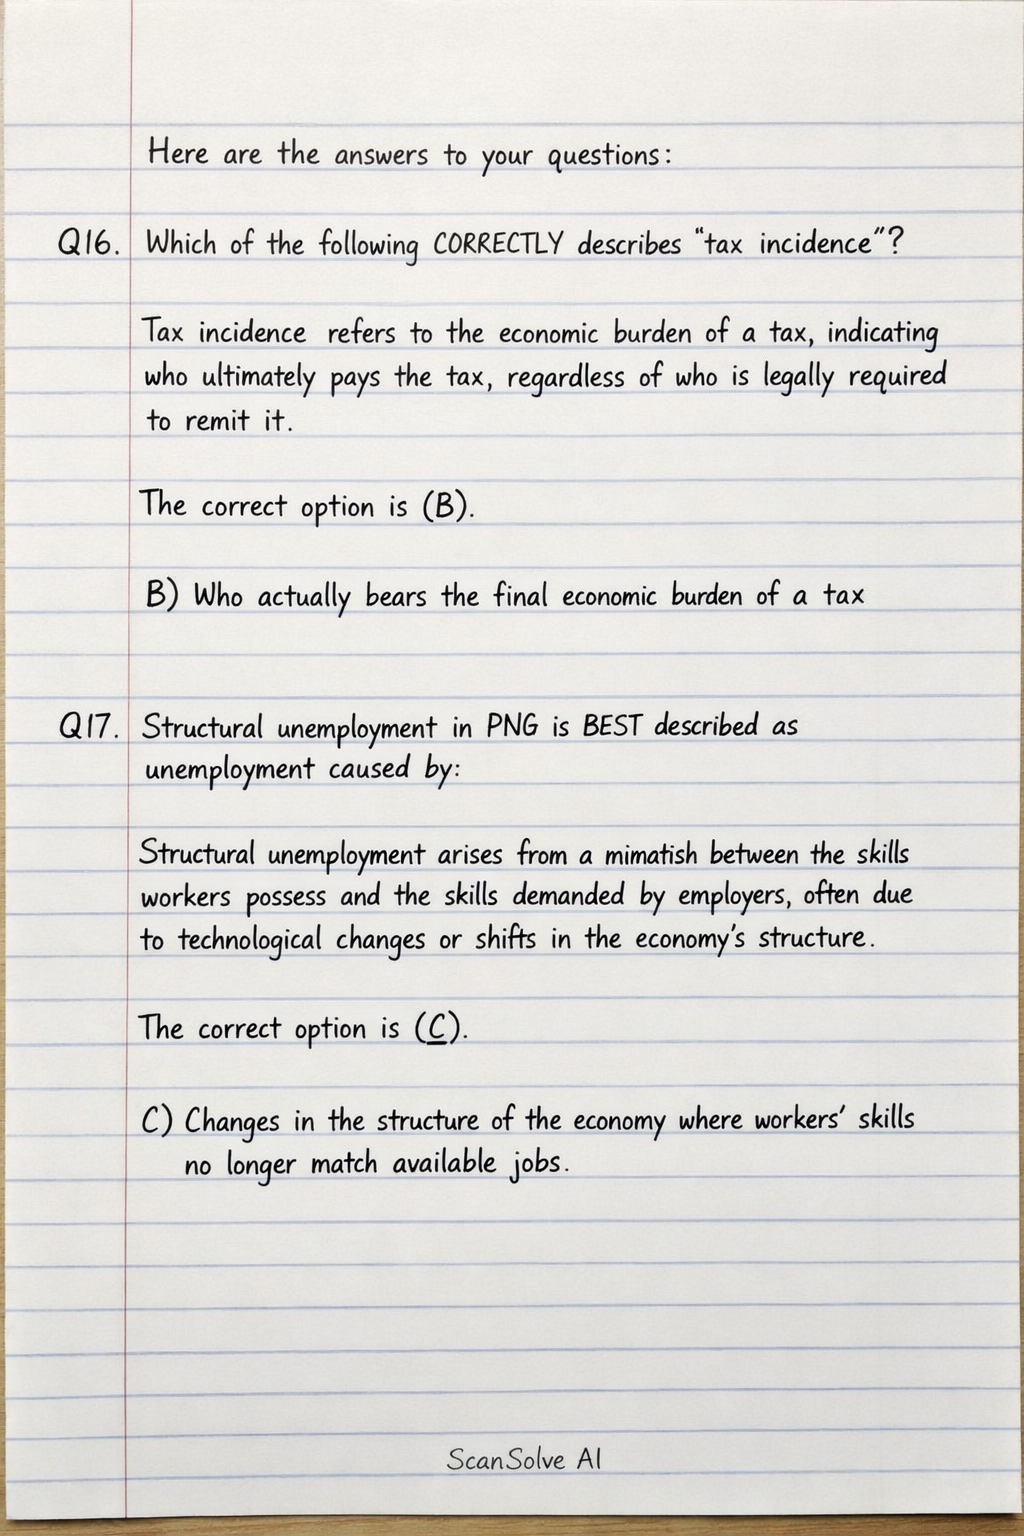 Here are the answers to your questions:
Q16. Which of the following CORRECTLY describes "tax incidence"?
Tax incidence refers to the economic burden of a tax, indicating
who ultimately pays the tax, regardless of who is legally required
to remit it.
The correct option is (B).
B) Who actually bears the final economic burden of a tax
Q17. Structural unemployment in PNG is BEST described as
unemployment caused by:
Structural unemployment arises from a mimatish between the skills
workers possess and the skills demanded by employers, often due
to technological changes or shifts in the economy's structure.
The correct option is (C).
C) Changes in the structure of the economy where workers' skills
no longer match available jobs.
ScanSolve AI